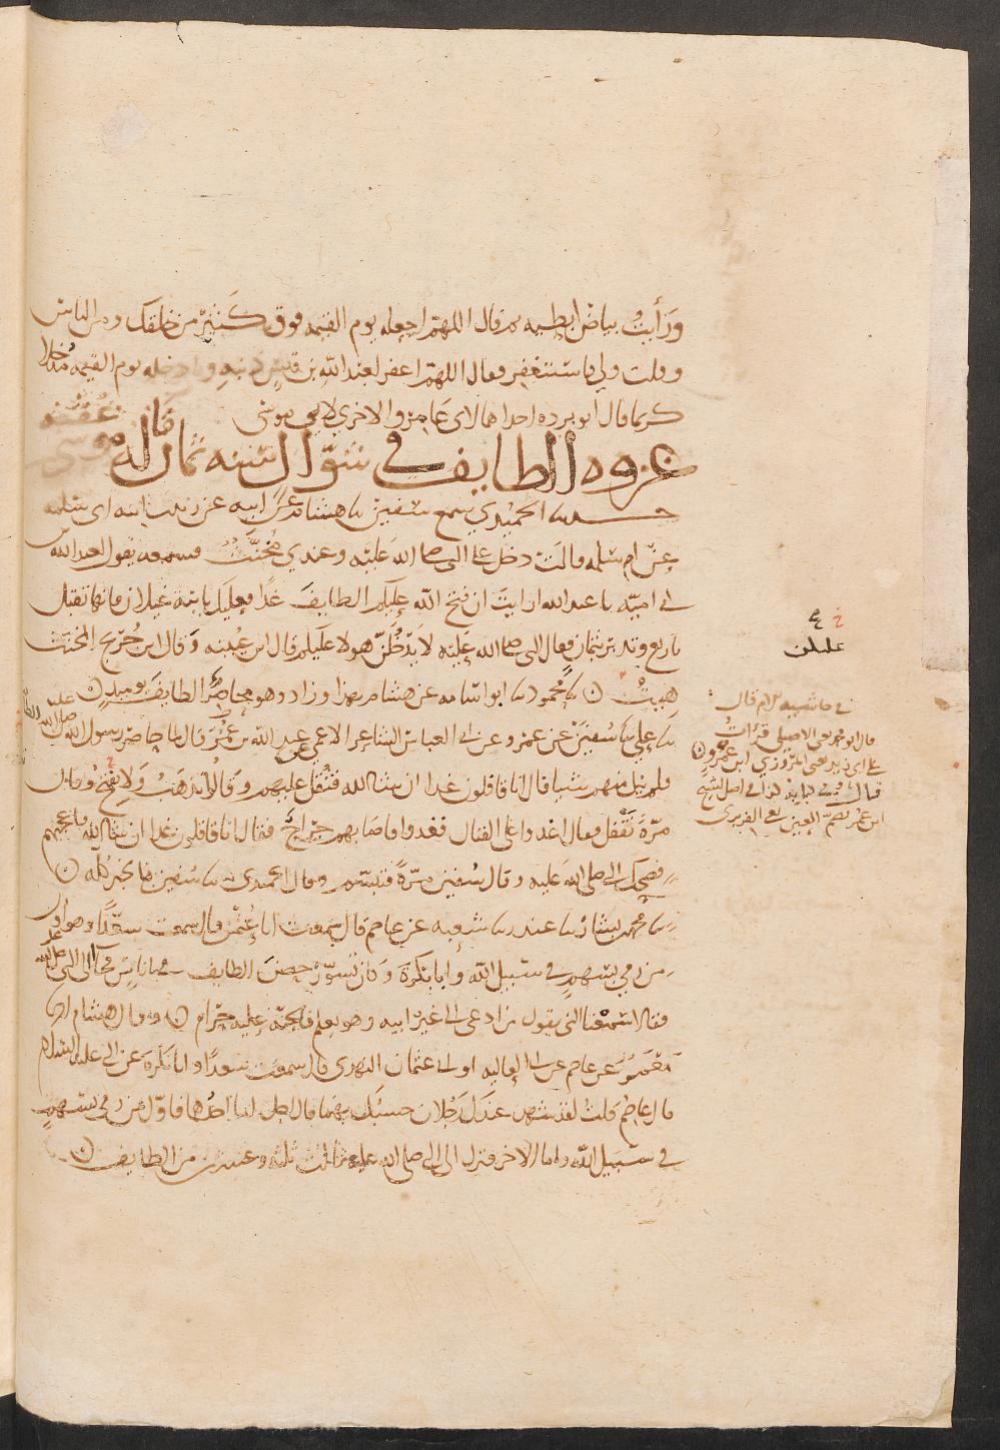 ورأيت بياض ابطيه ثم قال اللهم اجعله يوم القيمه فوق كثير من خلقك ومن الناس
وقلت ولي فاستغفر فقال اللهم اغفر لعبد الله بن قيس ذنبه وادخله يوم القيمه مدخلا
كريما قال ابو برده احداهما لابي عامر والاخرى لابي موسى
غزوه الطايف في شوال سنه ثمان قاله موسى بن عقبه
حدثنا الحميدي سمع سفين نا هشام عن ابيه عن زينب ابنه ابي سلمه
عن ام سلمه قالت دخل علي النبي صلى الله عليه وعندي مخنث فسمعه يقول لعبد الله
بن ابي اميه يا عبد الله ارايت ان فتح الله عليكم الطايف غدا فعليك بابنه غيلان فانها تقبل
باربع وتدبر بثمان فقال النبي صلى الله عليه لا يدخلن هولا عليكم قال ابن عيينه وقال ابن جريج المخنث
هيت نا محمود نا ابو اسامه عن هشام بهذا وزاد وهو محاصر الطايف يوميذ
نا علي نا سفين عن عمرو عن ابي العباس الشاعر الاعمى عن عبد الله بن عمر قال لما حاصر رسول الله صلى الله عليه الطايف
فلم ينل منهم شيا قال انا قافلون غدا ان شا الله فثقل عليهم وقالوا نذهب ولا نفتحه وقال
مرة نقفل فقال اغدوا على القتال فغدوا فاصابهم جراح فقال انا قافلون غدا ان شا الله فاعجبهم
فضحك النبي صلى الله عليه وقال سفين مرة فتبسم وقال الحميدي نا سفين الخبر كله
نا محمد بن بشار نا غندر نا شعبه عن عاصم قال سمعت ابا عثمن قال سمعت سعدا وهو اول
من رمى بسهم في سبيل الله وابا بكرة وكان تسور حصن الطايف في اناس فجا الى النبي صلى الله عليه
فقالا سمعنا النبي يقول من ادعى الى غير ابيه وهو يعلم فالجنه عليه حرام وقال هشام انا
معمر عن عاصم عن ابي العاليه او ابي عثمان النهدي قال سمعت سعدا وابا بكرة عن النبي عليه السلام
قال عاصم قلت لقد شهد عندك رجلان حسبك بهما قال اجل اما احدهما فاول من رمى بسهم
في سبيل الله واما الاخر فنزل الى النبي صلى الله عليه ثالث ثلثه وعشرين من الطايف
عليكن
في حاشيه قال
قال ابو محمد يعني الاصيلي قرات
على ابي زيد يعني المروزي ابن عمرو
ابن عمر بضم العين يعني الفربري